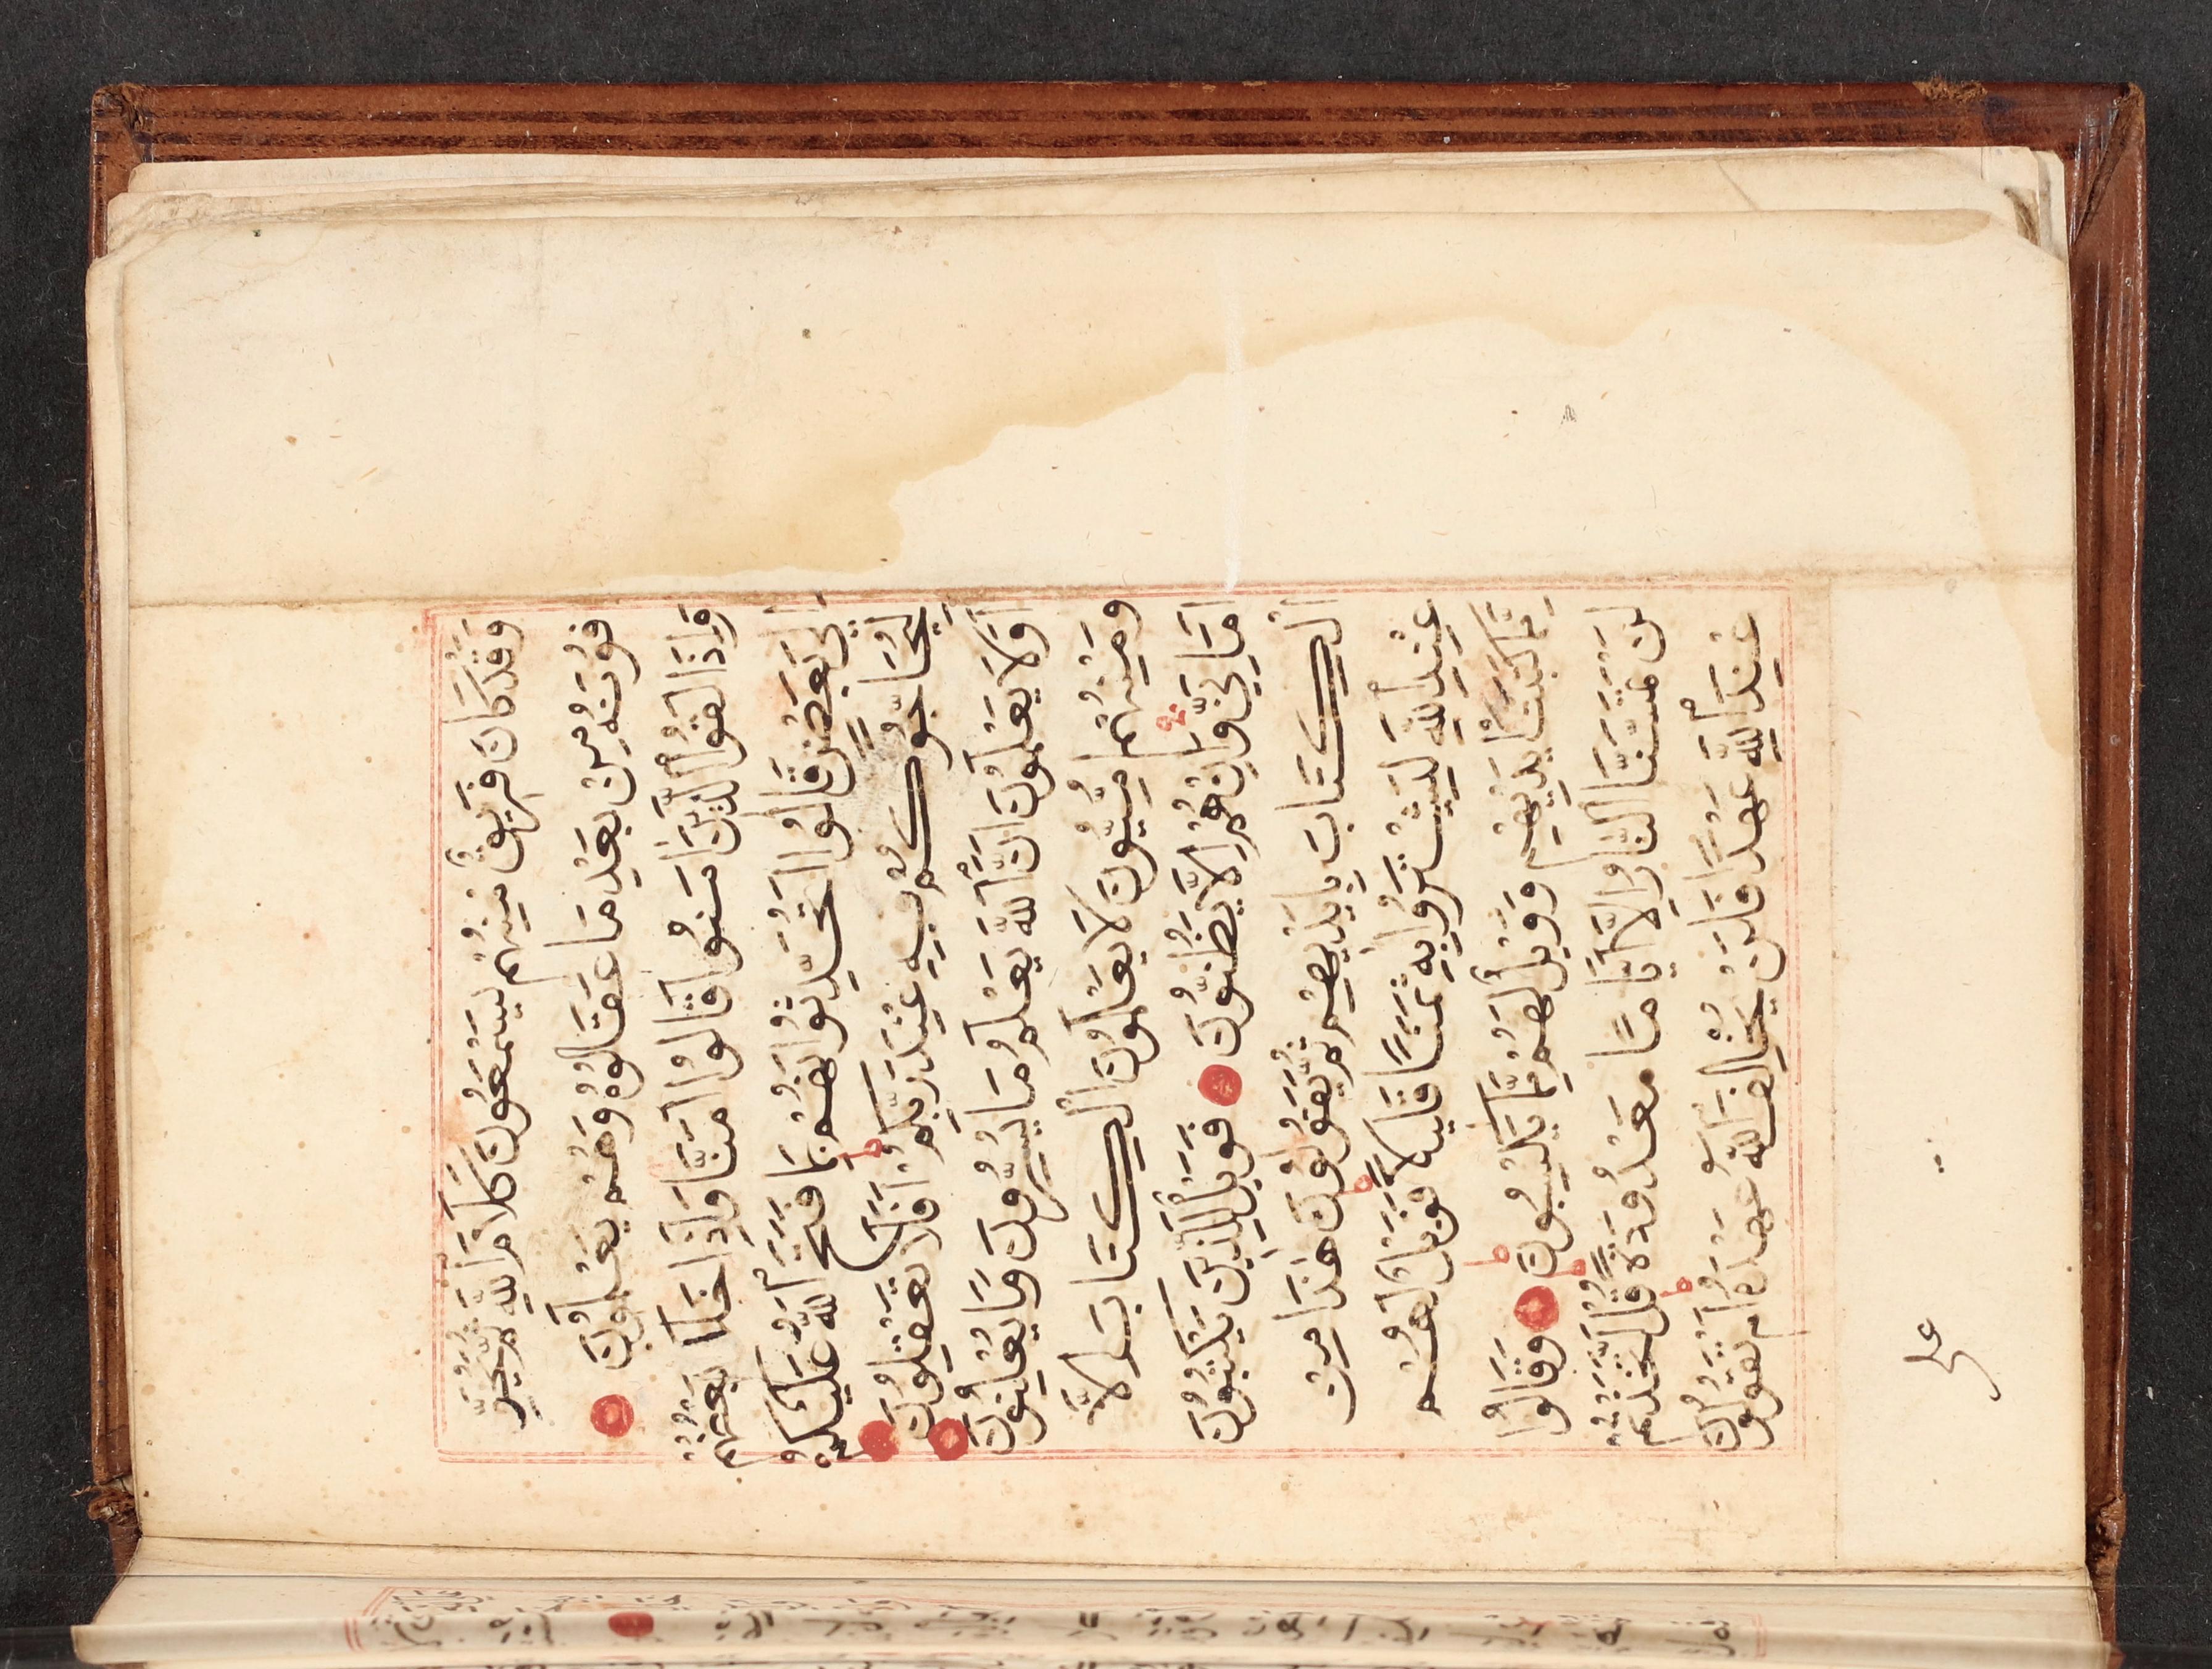 وَقَدْ كَانَ فَرِيقٌ مِنْهُمْ يَسْمَعُونَ كَلَامَ اللَّهِ ثُمَّ يُحَرِّ
فُونَهُ مِنْ بَعْدِ مَا عَقَلُوهُ وَهُمْ يَعْلَمُونَ
وَإِذَا لَقُوا الَّذِينَ آمَنُوا قَالُوا آمَنَّا وَإِذَا خَلَا بَعْضُهُمْ
إِلَى بَعْضٍ قَالُوا أَتُحَدِّثُونَهُمْ بِمَا فَتَحَ اللَّهُ عَلَيْكُمْ
لِيُحَاجُّوكُمْ بِهِ عِنْدَ رَبِّكُمْ ط أَفَلَا تَعْقِلُونَ
أَوَلَا يَعْلَمُونَ أَنَّ اللَّهَ يَعْلَمُ مَا يُسِرُّونَ وَمَا يُعْلِنُونَ
وَمِنْهُمْ أُمِّيُّونَ لَا يَعْلَمُونَ الْكِتَابَ إِلَّا
أَمَانِيَّ وَإِنْ هُمْ إِلَّا يَظُنُّونَ فَوَيْلٌ لِلَّذِينَ يَكْتُبُونَ
الْكِتَابَ بِأَيْدِيهِمْ ثُمَّ يَقُولُونَ هٰذَا مِنْ
عِنْدِ اللَّهِ لِيَشْتَرُوا بِهِ ثَمَنًا قَلِيلًا ط فَوَيْلٌ لَهُمْ
مِمَّا كَتَبَتْ أَيْدِيهِمْ وَوَيْلٌ لَهُمْ مِمَّا يَكْسِبُونَ ط وَقَالُوا
لَنْ تَمَسَّنَا النَّارُ إِلَّا أَيَّامًا مَعْدُودَةً ط قُلْ أَتَّخَذْتُمْ
عِنْدَ اللَّهِ عَهْدًا فَلَنْ يُخْلِفَ اللَّهُ عَهْدَهُ ط أَمْ تَقُولُونَ
على